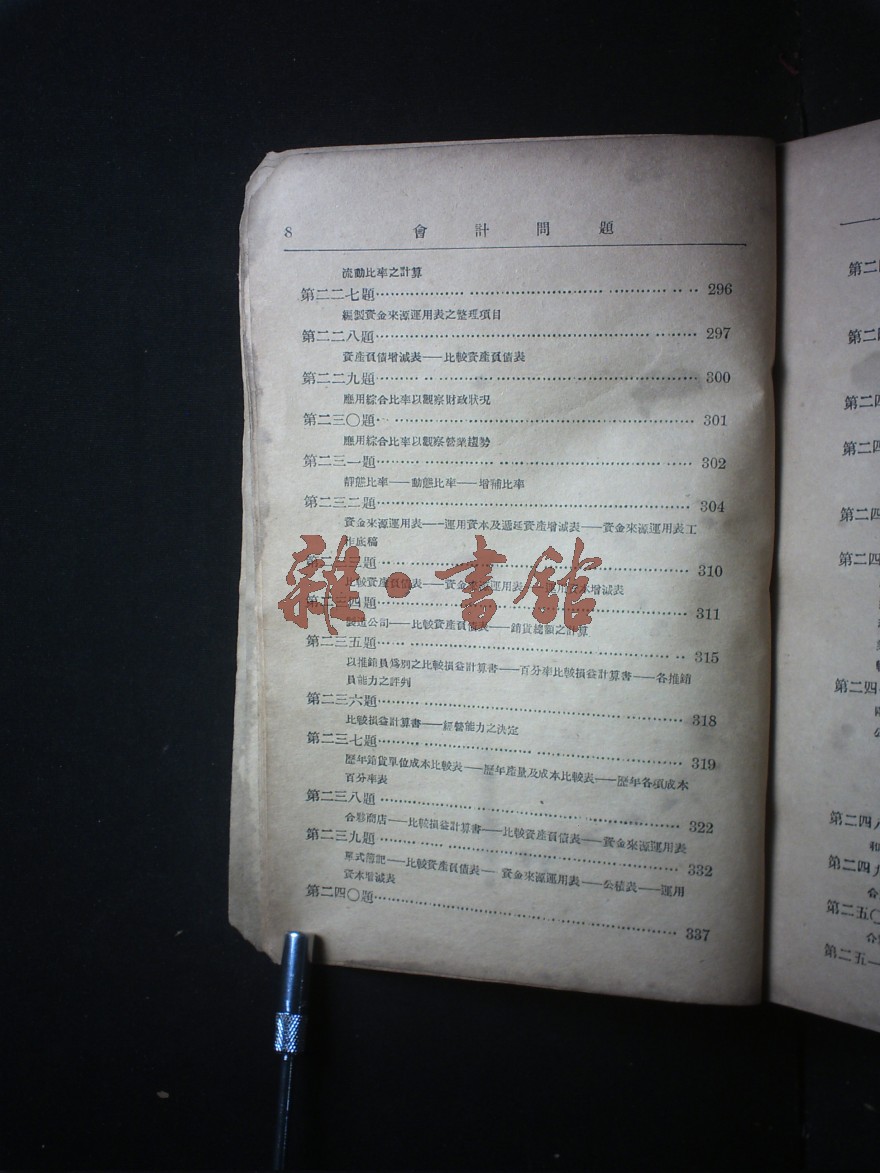 8 會計問題
流動比率之計算
第二二七題 296
編製資金來源運用表之整理項目
第二二八題 297
資產負債增減表——比較資產負債表
第二二九題 300
應用綜合比率以觀察財政狀况
第二三〇題 301
應用綜合比率以觀察營業趨勢
第二三一題 302
靜態比率——動態比率——增補比率
第二三二題 304
資金來源運用表——運用資本及遞延資產增減表——資金來源運用表工
作底稿
第二三三題 310
比較資產負債表——資金來源運用表——運用資本增減表
第二三四題 311
製造公司——比較資產負債表——銷貨總額之計算
第二三五題 315
以推銷員爲別之比較損益計算書——百分率比較損益計算書——各推銷
員能力之評判
第二三六題 318
比較損益計算書——經營能力之決定
第二三七題 319
歷年銷貨單位成本比較表——歷年產量及成本比較表——歷年各項成本
百分率表
第二三八題 322
合夥商店——比較損益計算書——比較資產負債表——資金來源運用表
第二三九題 332
單式簿記——比較資產負債表——資金來源運用表——公積表——運用
資本增減表
第二四〇題 337
雜·書館
第二
第二四
第二四
第二四
第二四
第二四
第二四
公
第二四八
和
第二四九
合
第二五〇
合
第二五一